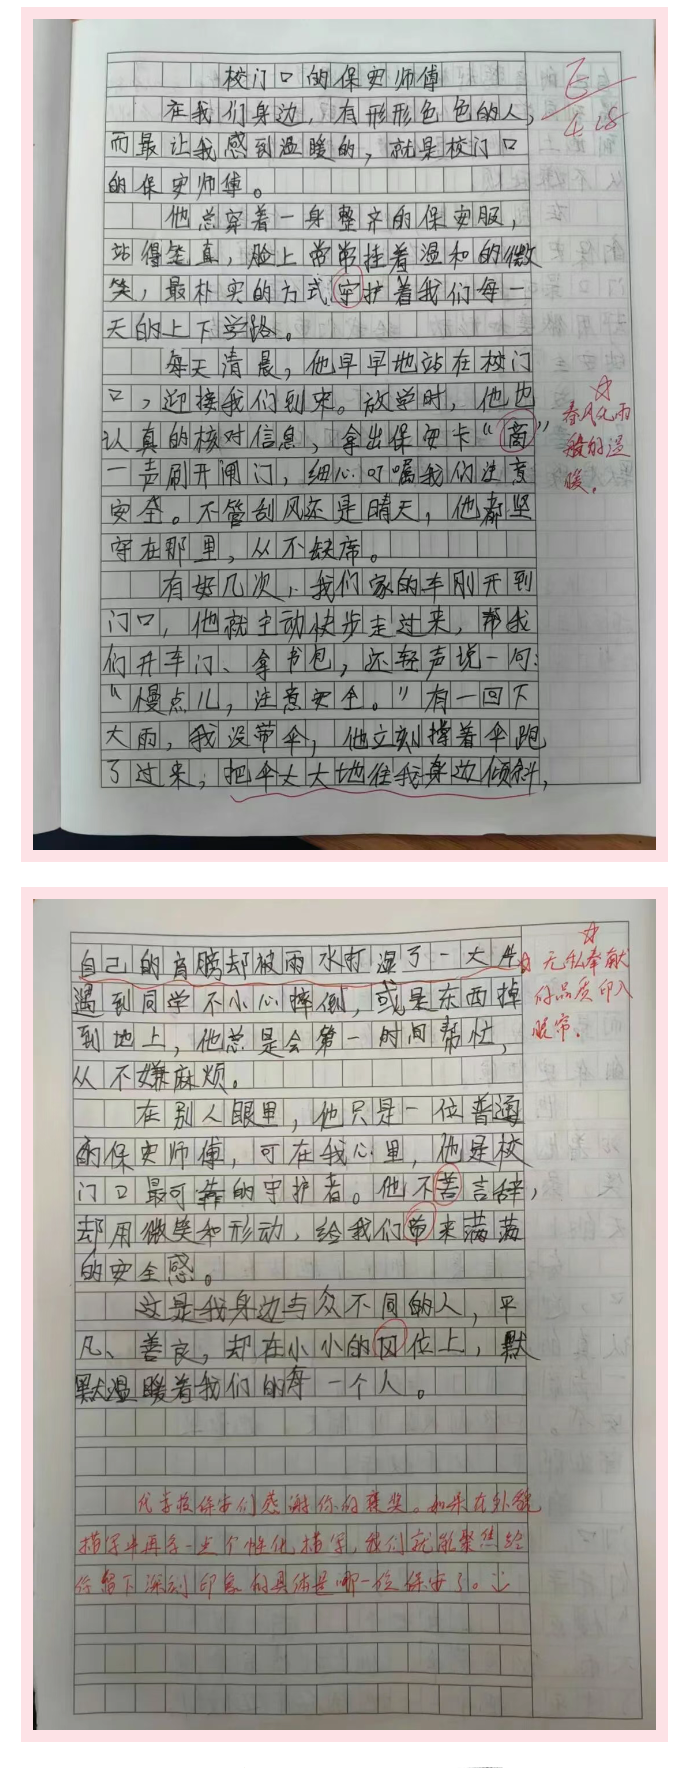 校门口的保安师傅
在我们身边,有形形色色的人,
而最让我感到温暖的,就是校门口
的保安师傅。
他总穿着一身整齐的保安服,
站得笔直,脸上常常挂着温和的微
笑,最朴实的方式守护着我们每一
天的上下学路。
每天清晨,他早早地站在校门
口,迎接我们到来。放学时,他也
认真的核对信息,拿出保安卡“商”
一声刷开闸门,细心叮嘱我们注意
安全。不管刮风还是晴天,他都坚
守在那里,从不缺席。
春风化雨
般的温
暖。
有好几次,我们家的车刚开到
门口,他就主动快步走过来,帮我
们开车门、拿书包,还轻声说一句:
“慢点儿,注意安全。”有一回下
大雨,我没带伞,他立刻撑着伞跑
了过来,把伞大大地往我身边倾斜,
自己的肩膀却被雨水打湿了一大片。
无私奉献
的品质印入
眼帘。
遇到同学不小心摔倒,或是东西掉
到地上,他总是会第一时间帮忙,
从不嫌麻烦。
在别人眼里,他只是一位普通
的保安师傅,可在我心里,他是校
门口最可靠的守护者。他不善言辞,
却用微笑和形动,给我们带来满满
的安全感。
这是我身边与众不同的人,平
凡、善良,却在小小的冈位上,默
默温暖着我们的每一个人。
代学校保安们感谢你的褒奖。如果在外貌
描写中再多一点个性化描写,我们就能聚焦给
你留下深刻印象的具体是哪一位保安了。